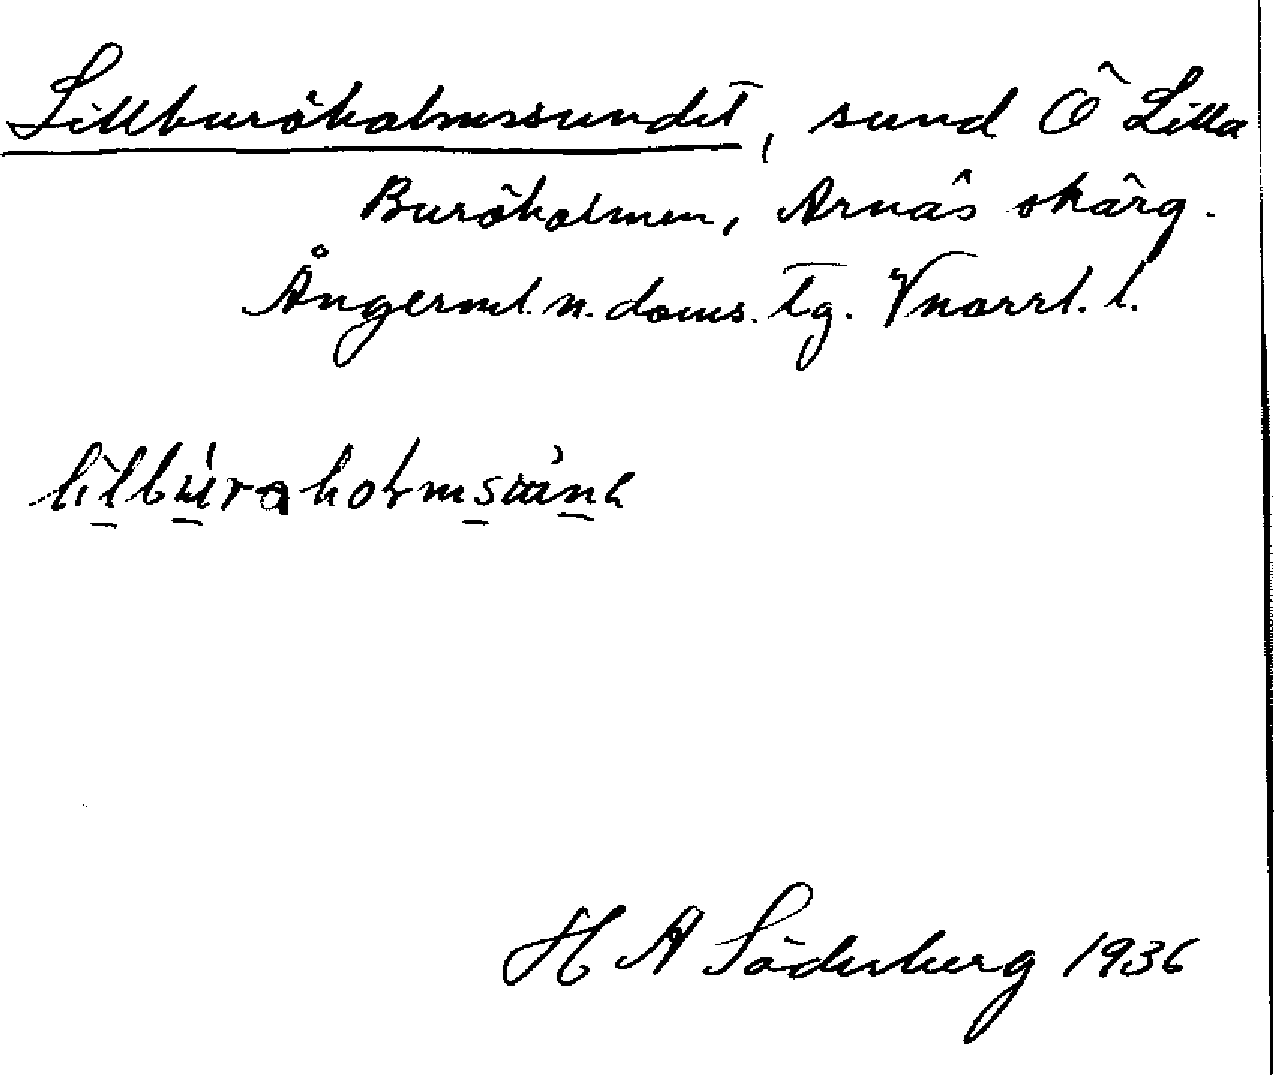 Lillburöholmssundet, sund Ö Lilla
Buröholmen, Arnäs skärg.
Ångerml. n. doms. tg. Vnorrl. l.
H A Söderberg 1936